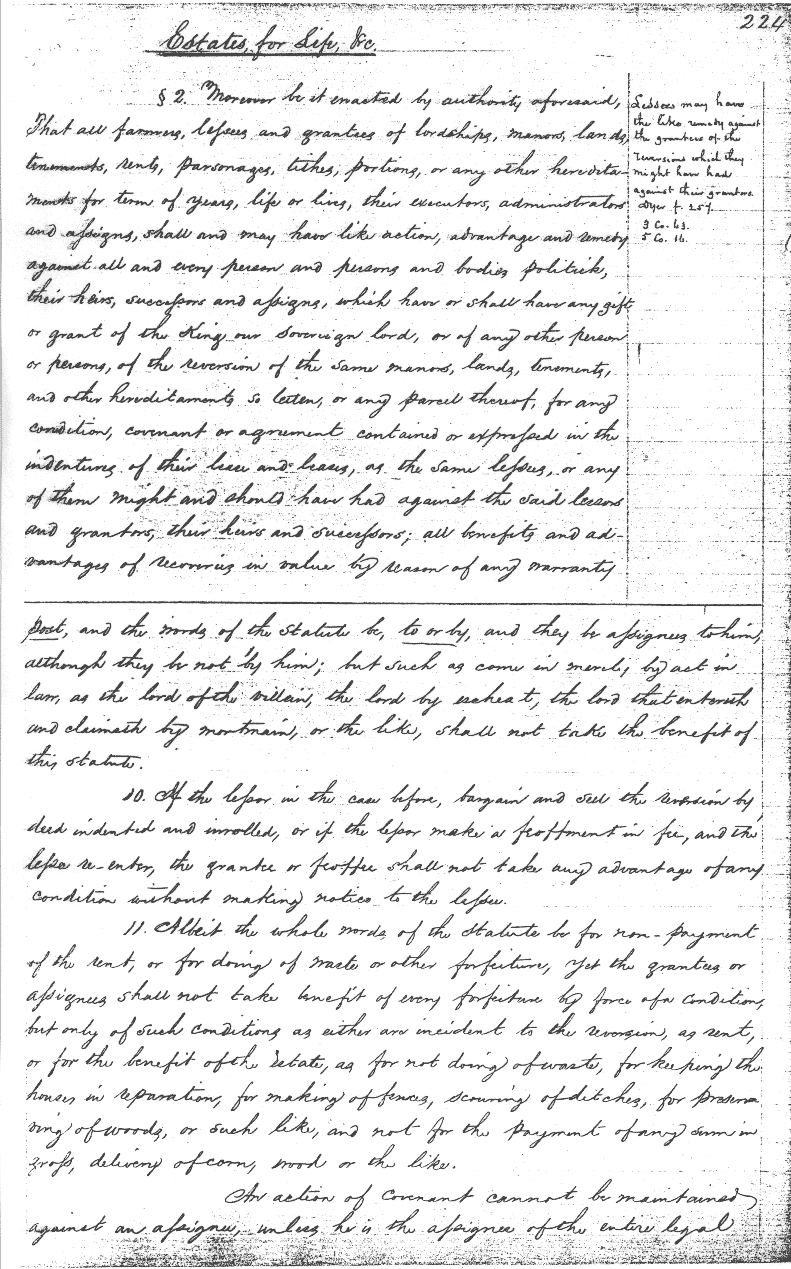 224
Estates, for Life, &c.
§ 2. Moreover be it enacted by authority aforesaid,
That all farmers, lessees and grantees of lordships, manors, lands,
tenements, rents, parsonages, tithes, portions, or any other heredita-
ments for term of years, life or lives, their executors, administrators
and assigns, shall and may have like action, advantage and remedy
against all and every person and persons and bodies politick,
their heirs, successors and assigns, which have or shall have any gift
or grant of the King our sovereign lord, or of any other person
or persons, of the reversion of the same manors, lands, tenements,
and other hereditaments so letten, or any parcel thereof, for any
condition, covenant or agreement contained or expressed in the
indentures of their lease and leases, as the same lessees, or any
of them might and should have had against the said lessors
and grantors, their heirs and successors; all benefits and ad-
vantages of recoveries in value by reason of any warranty
Lessees may have
the like remedy against
the grantees of the
reversion which they
might have had
against their grantors.
Dyer f. 257.
3 Co. 63.
5 Co. 16.
post, and the words of the statute be, to or by, and they be assignees to him,
although they be not by him; but such as come in merely by act in
law, as the lord of the villain, the lord by escheat, the lord that entereth
and claimeth by mortmain, or the like, shall not take the benefit of
this statute.
10. If the lessor in the case before, bargain and sell the reversion by
deed indented and inrolled, or if the lessor make a feoffment in fee, and the
lessee re-enter, the grantee or feoffee shall not take any advantage of any
condition without making notice to the lessee.
11. Albeit the whole words of the statute be for non-payment
of the rent, or for doing of waste or other forfeiture, yet the grantees or
assignees shall not take benefit of every forfeiture by force of a condition,
but only of such conditions as either are incident to the reversion, as rent,
or for the benefit of the estate, as for not doing of waste, for keeping the
houses in reparation, for making of fences, scouring of ditches, for preser-
ving of woods, or such like, and not for the payment of any sum in
gross, delivery of corn, wood or the like.
An action of covenant cannot be maintained
against an assignee, unless he is the assignee of the entire legal